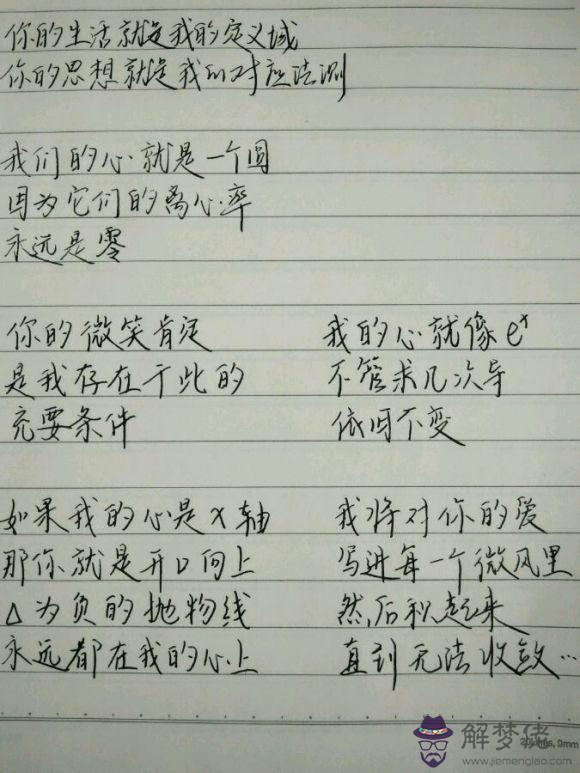 你的生活就是我的定义域
你的思想就是我的对应法则
我们的心就是一个圆
因为它们的离心率
永远是零
你的微笑肯定
是我存在于此的
充要条件
我的心就像eˣ
不管求几次导
依旧不变
如果我的心是x轴
那你就是开口向上
Δ为负的抛物线
永远都在我的心上
我将对你的爱
写进每一个微风里
然后积起来
直到无法收敛…
解梦佬
www.jiemenglao.com